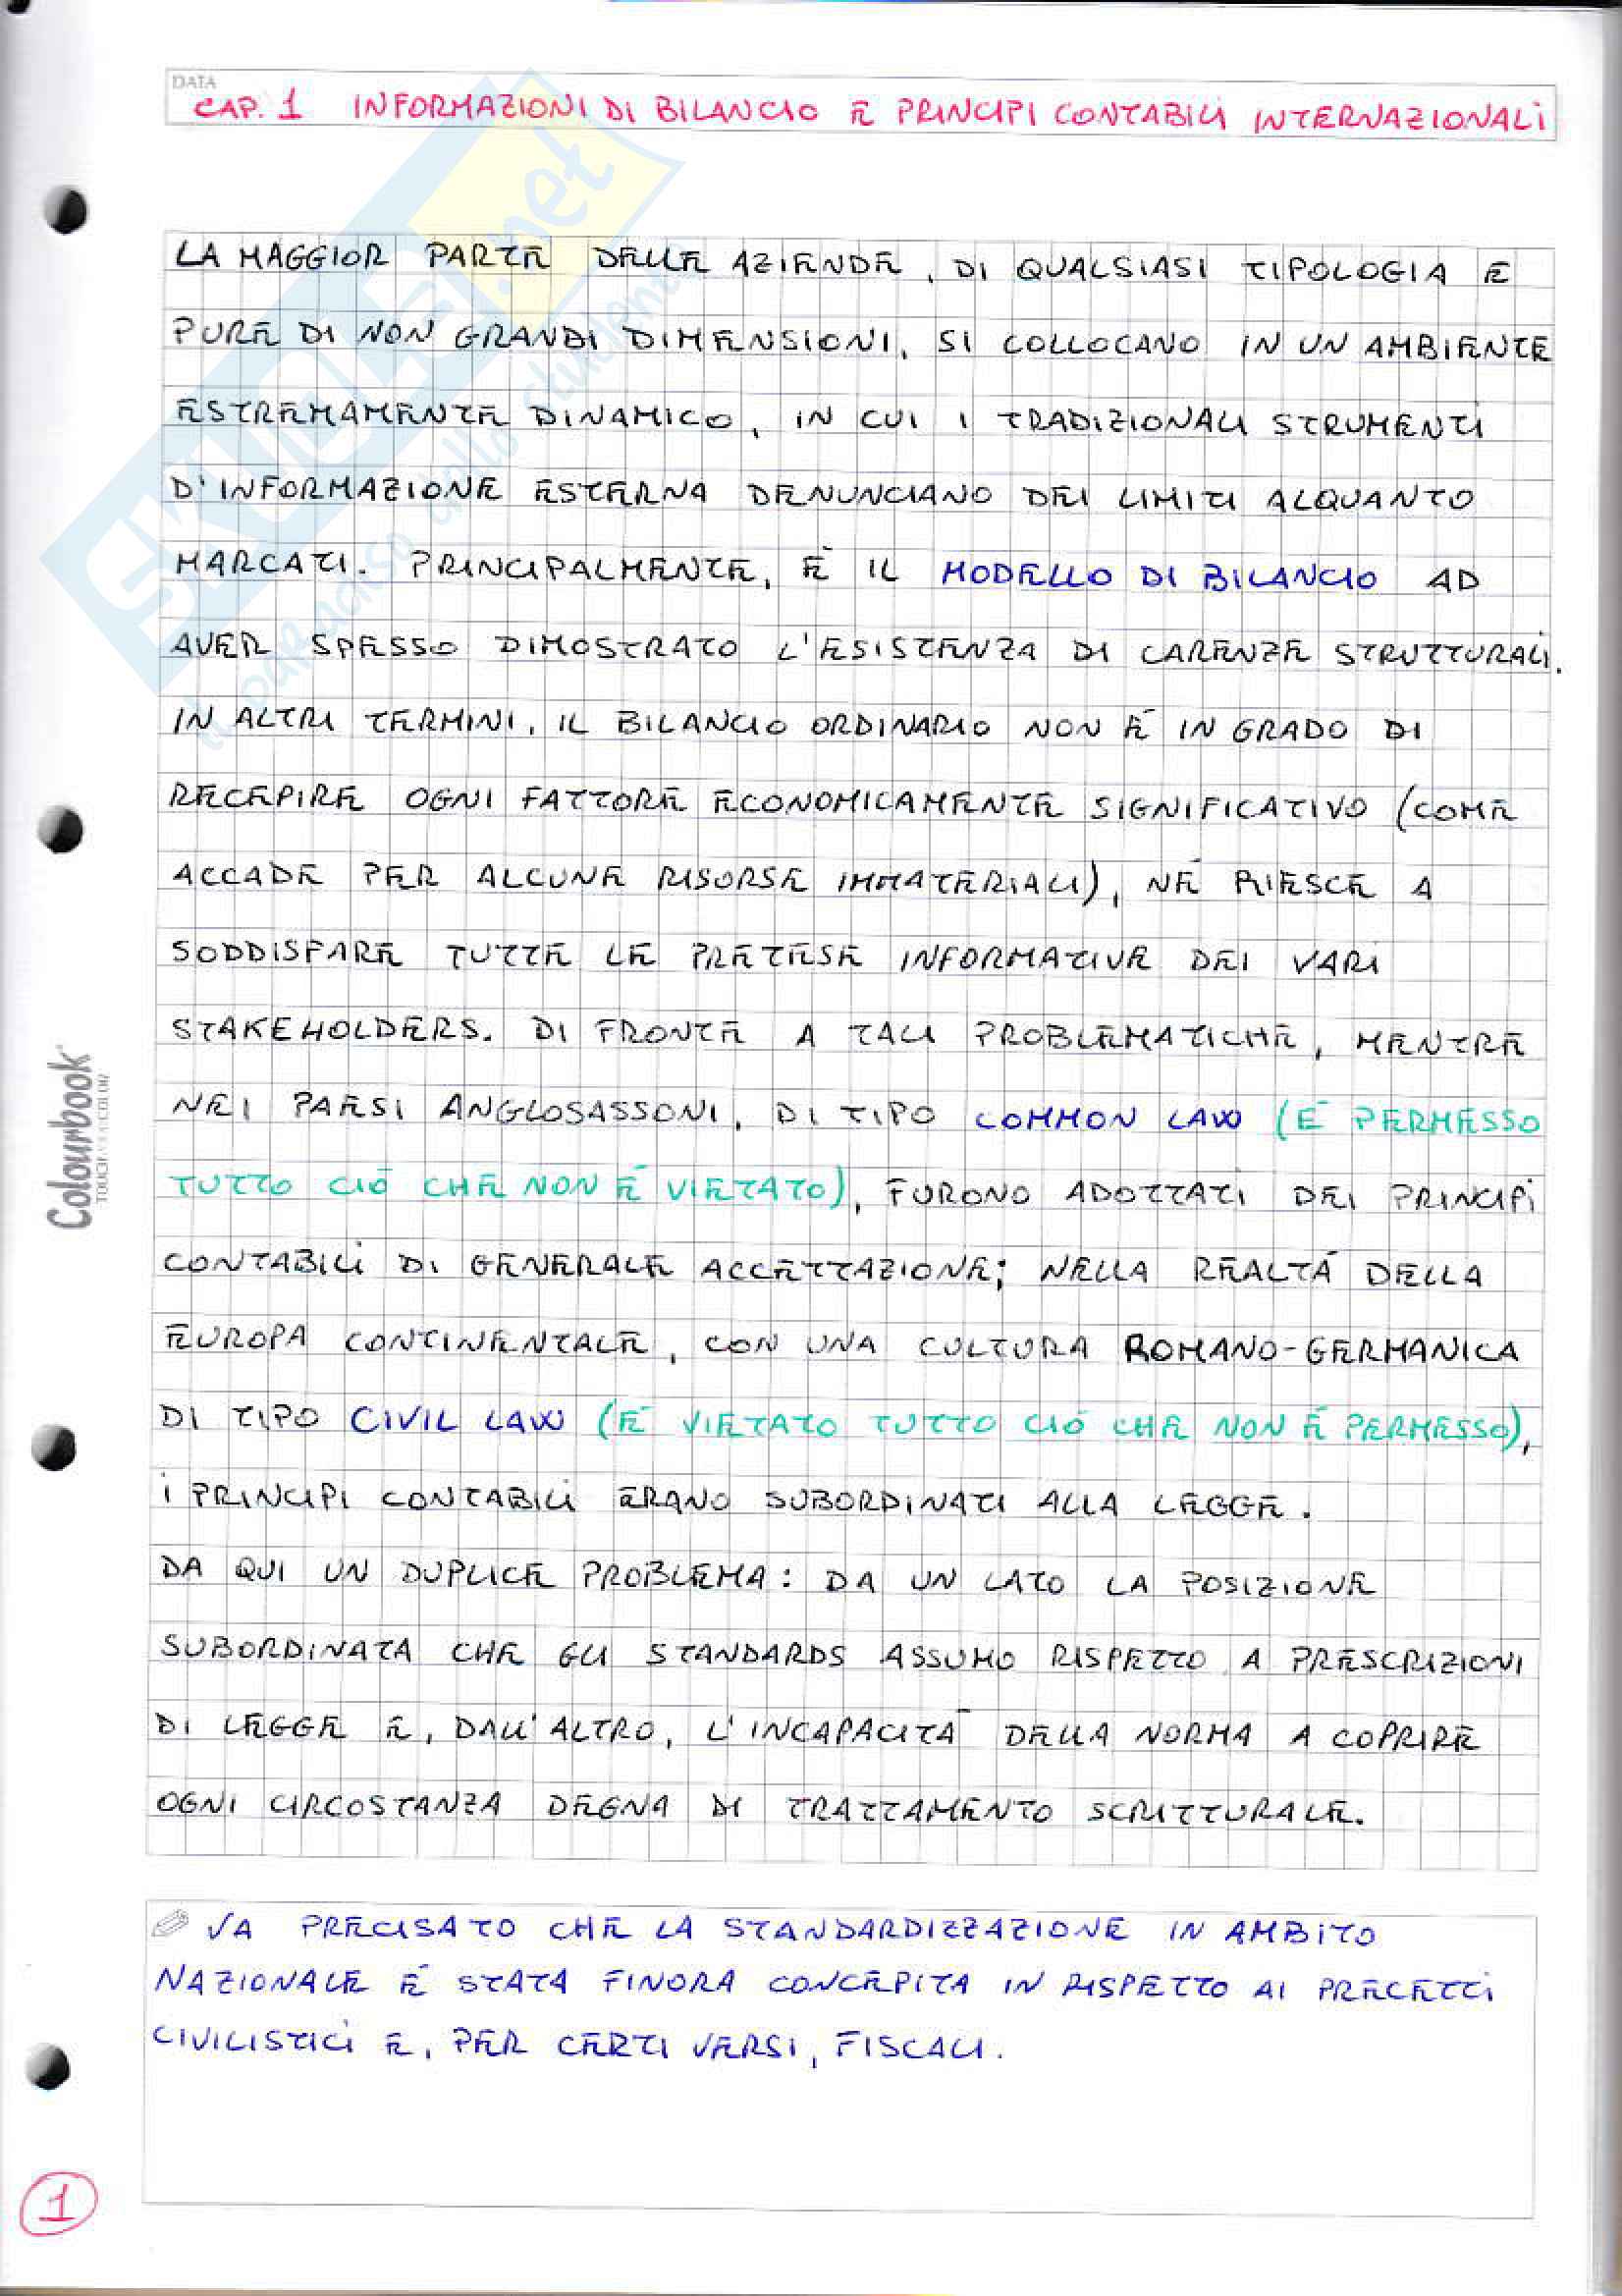 DATA
CAP. 1 INFORMAZIONI DI BILANCIO E PRINCIPI CONTABILI INTERNAZIONALI
LA MAGGIOR PARTE DELLE AZIENDE, DI QUALSIASI TIPOLOGIA E
PURE DI NON GRANDI DIMENSIONI, SI COLLOCANO IN UN AMBIENTE
ESTREMAMENTE DINAMICO, IN CUI I TRADIZIONALI STRUMENTI
D'INFORMAZIONE ESTERNA DENUNCIANO DEI LIMITI ALQUANTO
MARCATI. PRINCIPALMENTE, È IL MODELLO DI BILANCIO AD
AVER SPESSO DIMOSTRATO L'ESISTENZA DI CARENZE STRUTTURALI.
IN ALTRI TERMINI, IL BILANCIO ORDINARIO NON È IN GRADO DI
RECEPIRE OGNI FATTORE ECONOMICAMENTE SIGNIFICATIVO (COME
ACCADE PER ALCUNE RISORSE IMMATERIALI), NÉ RIESCE A
SODDISFARE TUTTE LE PRETESE INFORMATIVE DEI VARI
STAKEHOLDERS. DI FRONTE A TALI PROBLEMATICHE, MENTRE
NEI PAESI ANGLOSASSONI, DI TIPO COMMON LAW (È PERMESSO
TUTTO CIÒ CHE NON È VIETATO), FURONO ADOTTATI DEI PRINCIPI
CONTABILI DI GENERALE ACCETTAZIONE; NELLA REALTÀ DELLA
EUROPA CONTINENTALE, CON UNA CULTURA ROMANO-GERMANICA
DI TIPO CIVIL LAW (È VIETATO TUTTO CIÒ CHE NON È PERMESSO),
I PRINCIPI CONTABILI ERANO SUBORDINATI ALLA LEGGE.
DA QUI UN DUPLICE PROBLEMA: DA UN LATO LA POSIZIONE
SUBORDINATA CHE GLI STANDARDS ASSUMO RISPETTO A PRESCRIZIONI
DI LEGGE E, DALL'ALTRO, L'INCAPACITÀ DELLA NORMA A COPRIRE
OGNI CIRCOSTANZA DEGNA DI TRATTAMENTO SCRITTURALE.
VA PRECISATO CHE LA STANDARDIZZAZIONE IN AMBITO
NAZIONALE È STATA FINORA CONCEPITA IN RISPETTO AI PRECETTI
CIVILISTICI E, PER CERTI VERSI, FISCALI.
1
Colourbook
SKUOLA.net
il paradiso dello studente